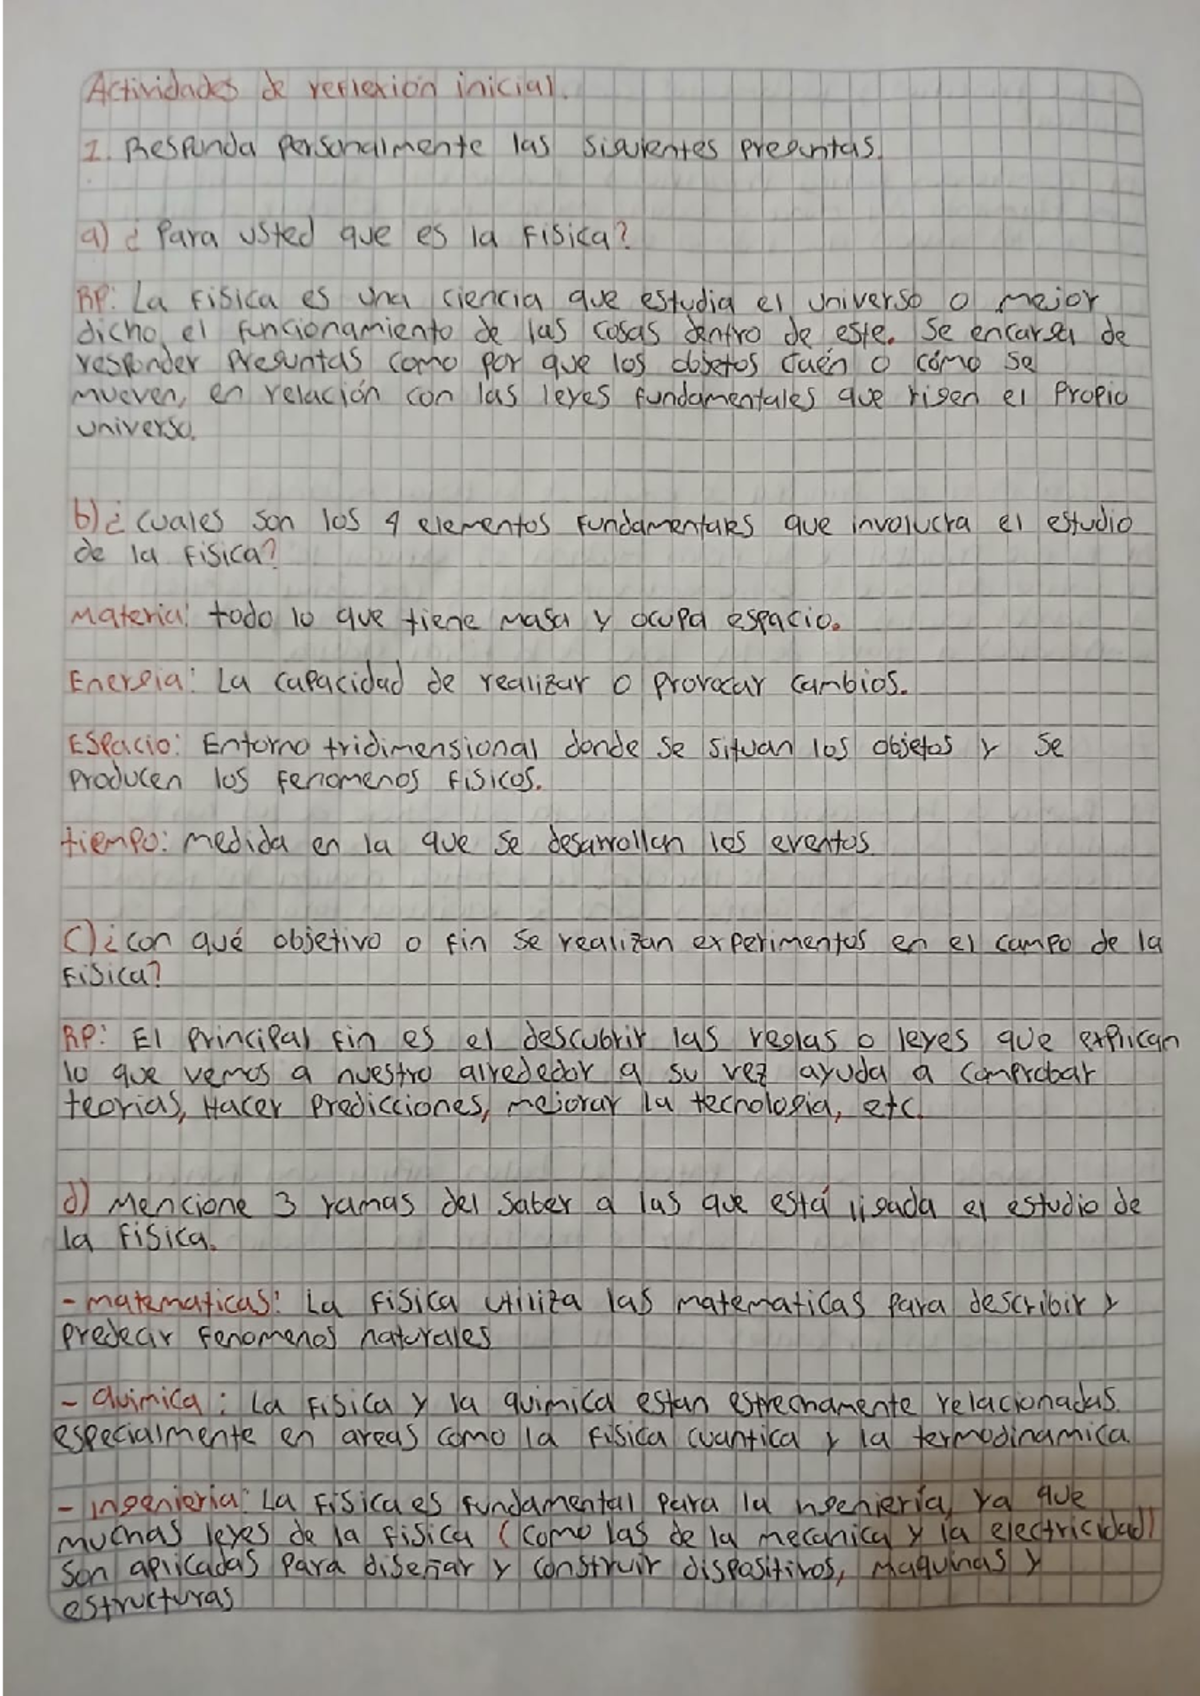 Actividades de reflexión inicial.
1. Responda personalmente las siguientes preguntas.
a) ¿Para usted que es la Fisica?
RP: La Fisica es una ciencia que estudia el universo o mejor
dicho el funcionamiento de las cosas dentro de este. Se encarga de
responder preguntas como por que los objetos caen o cómo se
mueven, en relación con las leyes fundamentales que rigen el Propio
universo.
b) ¿Cuales son los 4 elementos Fundamentales que involucra el estudio
de la Fisica?
Materia: todo lo que tiene masa y ocupa espacio.
Energia: La capacidad de realizar o provocar cambios.
Espacio: Entorno tridimensional donde se situan los objetos y se
producen los fenomenos Fisicos.
tiempo: medida en la que se desarrollan los eventos
C) ¿con qué objetivo o fin se realizan experimentos en el campo de la
Fisica?
RP: El principal fin es el descubrir las reglas o leyes que explican
lo que vemos a nuestro alrededor a su vez ayuda a comprobar
teorias, Hacer Predicciones, mejorar la tecnologia, etc.
d) Mencione 3 ramas del saber a las que está ligada el estudio de
la Fisica.
- matematicas: La Fisica utiliza las matematicas para describir y
predecir fenomenos naturales
- Quimica: La Fisica y la quimica estan estrechamente relacionadas.
especialmente en areas como la Fisica cuantica y la termodinamica
- ingenieria: La Fisica es fundamental para la ngeniería, ya que
muchas leyes de la fisica (como las de la mecanica y la electricidad)
son aplicadas para diseñar y construir dispositivos, maquinas y
estructuras